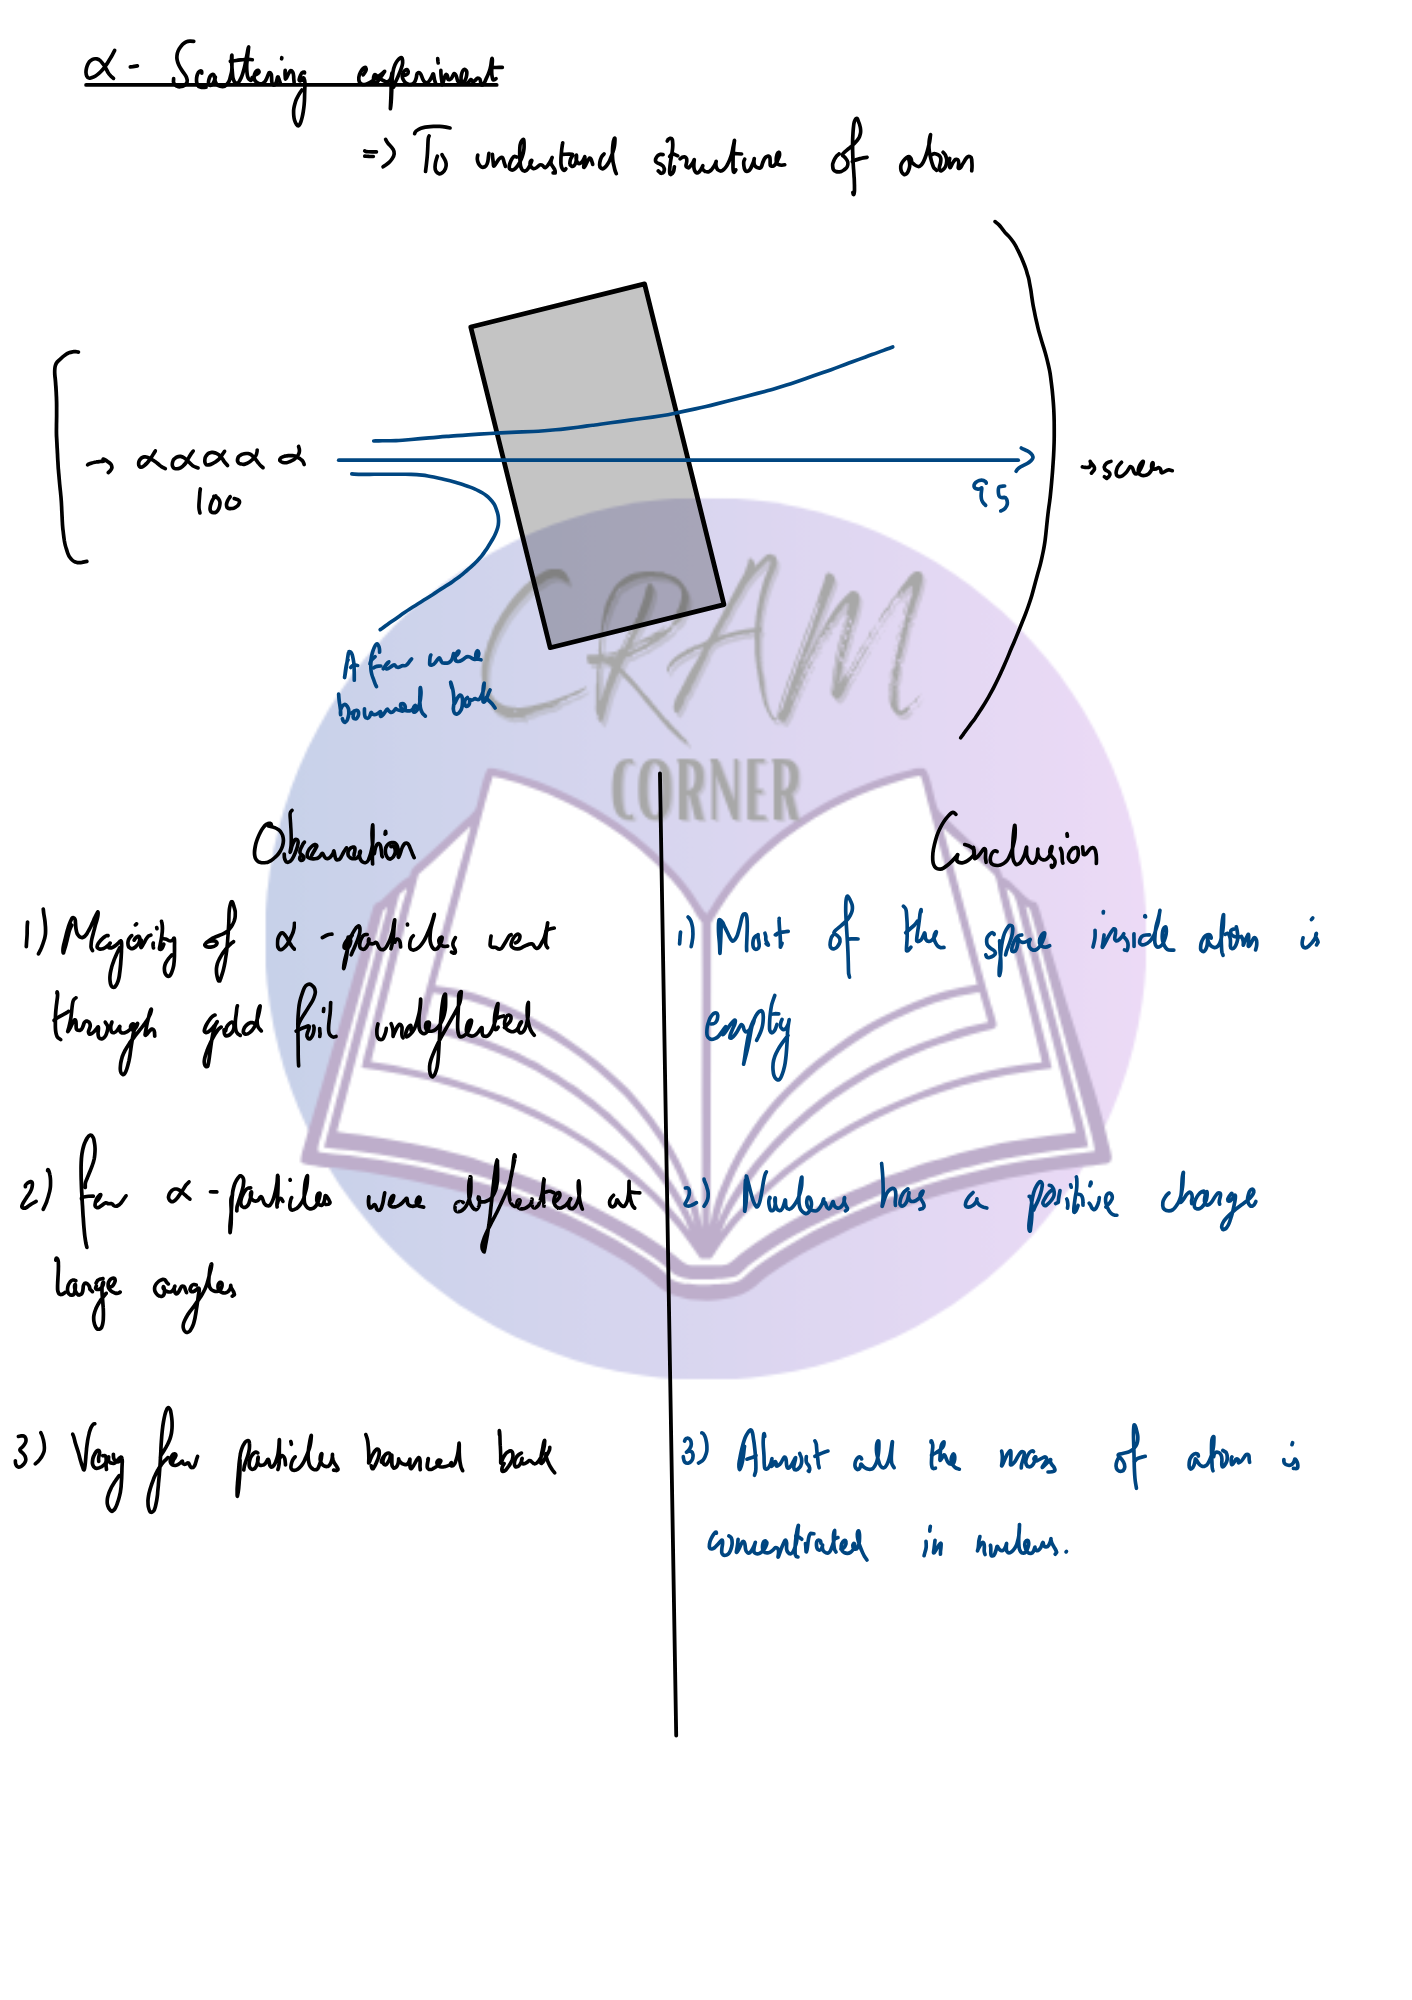 α - Scattering experiment
=> To understand structure of atom
→ α α α α α
100
95
→ screen
A few were
bounced back
CRAM
CORNER
Observation
Conclusion
1) Majority of α - particles went
through gold foil undeflected
1) Most of the space inside atom is
empty
2) few α - particles were deflected at
large angles
2) Nucleus has a positive charge
3) Very few particles bounced back
3) Almost all the mass of atom is
concentrated in nucleus.